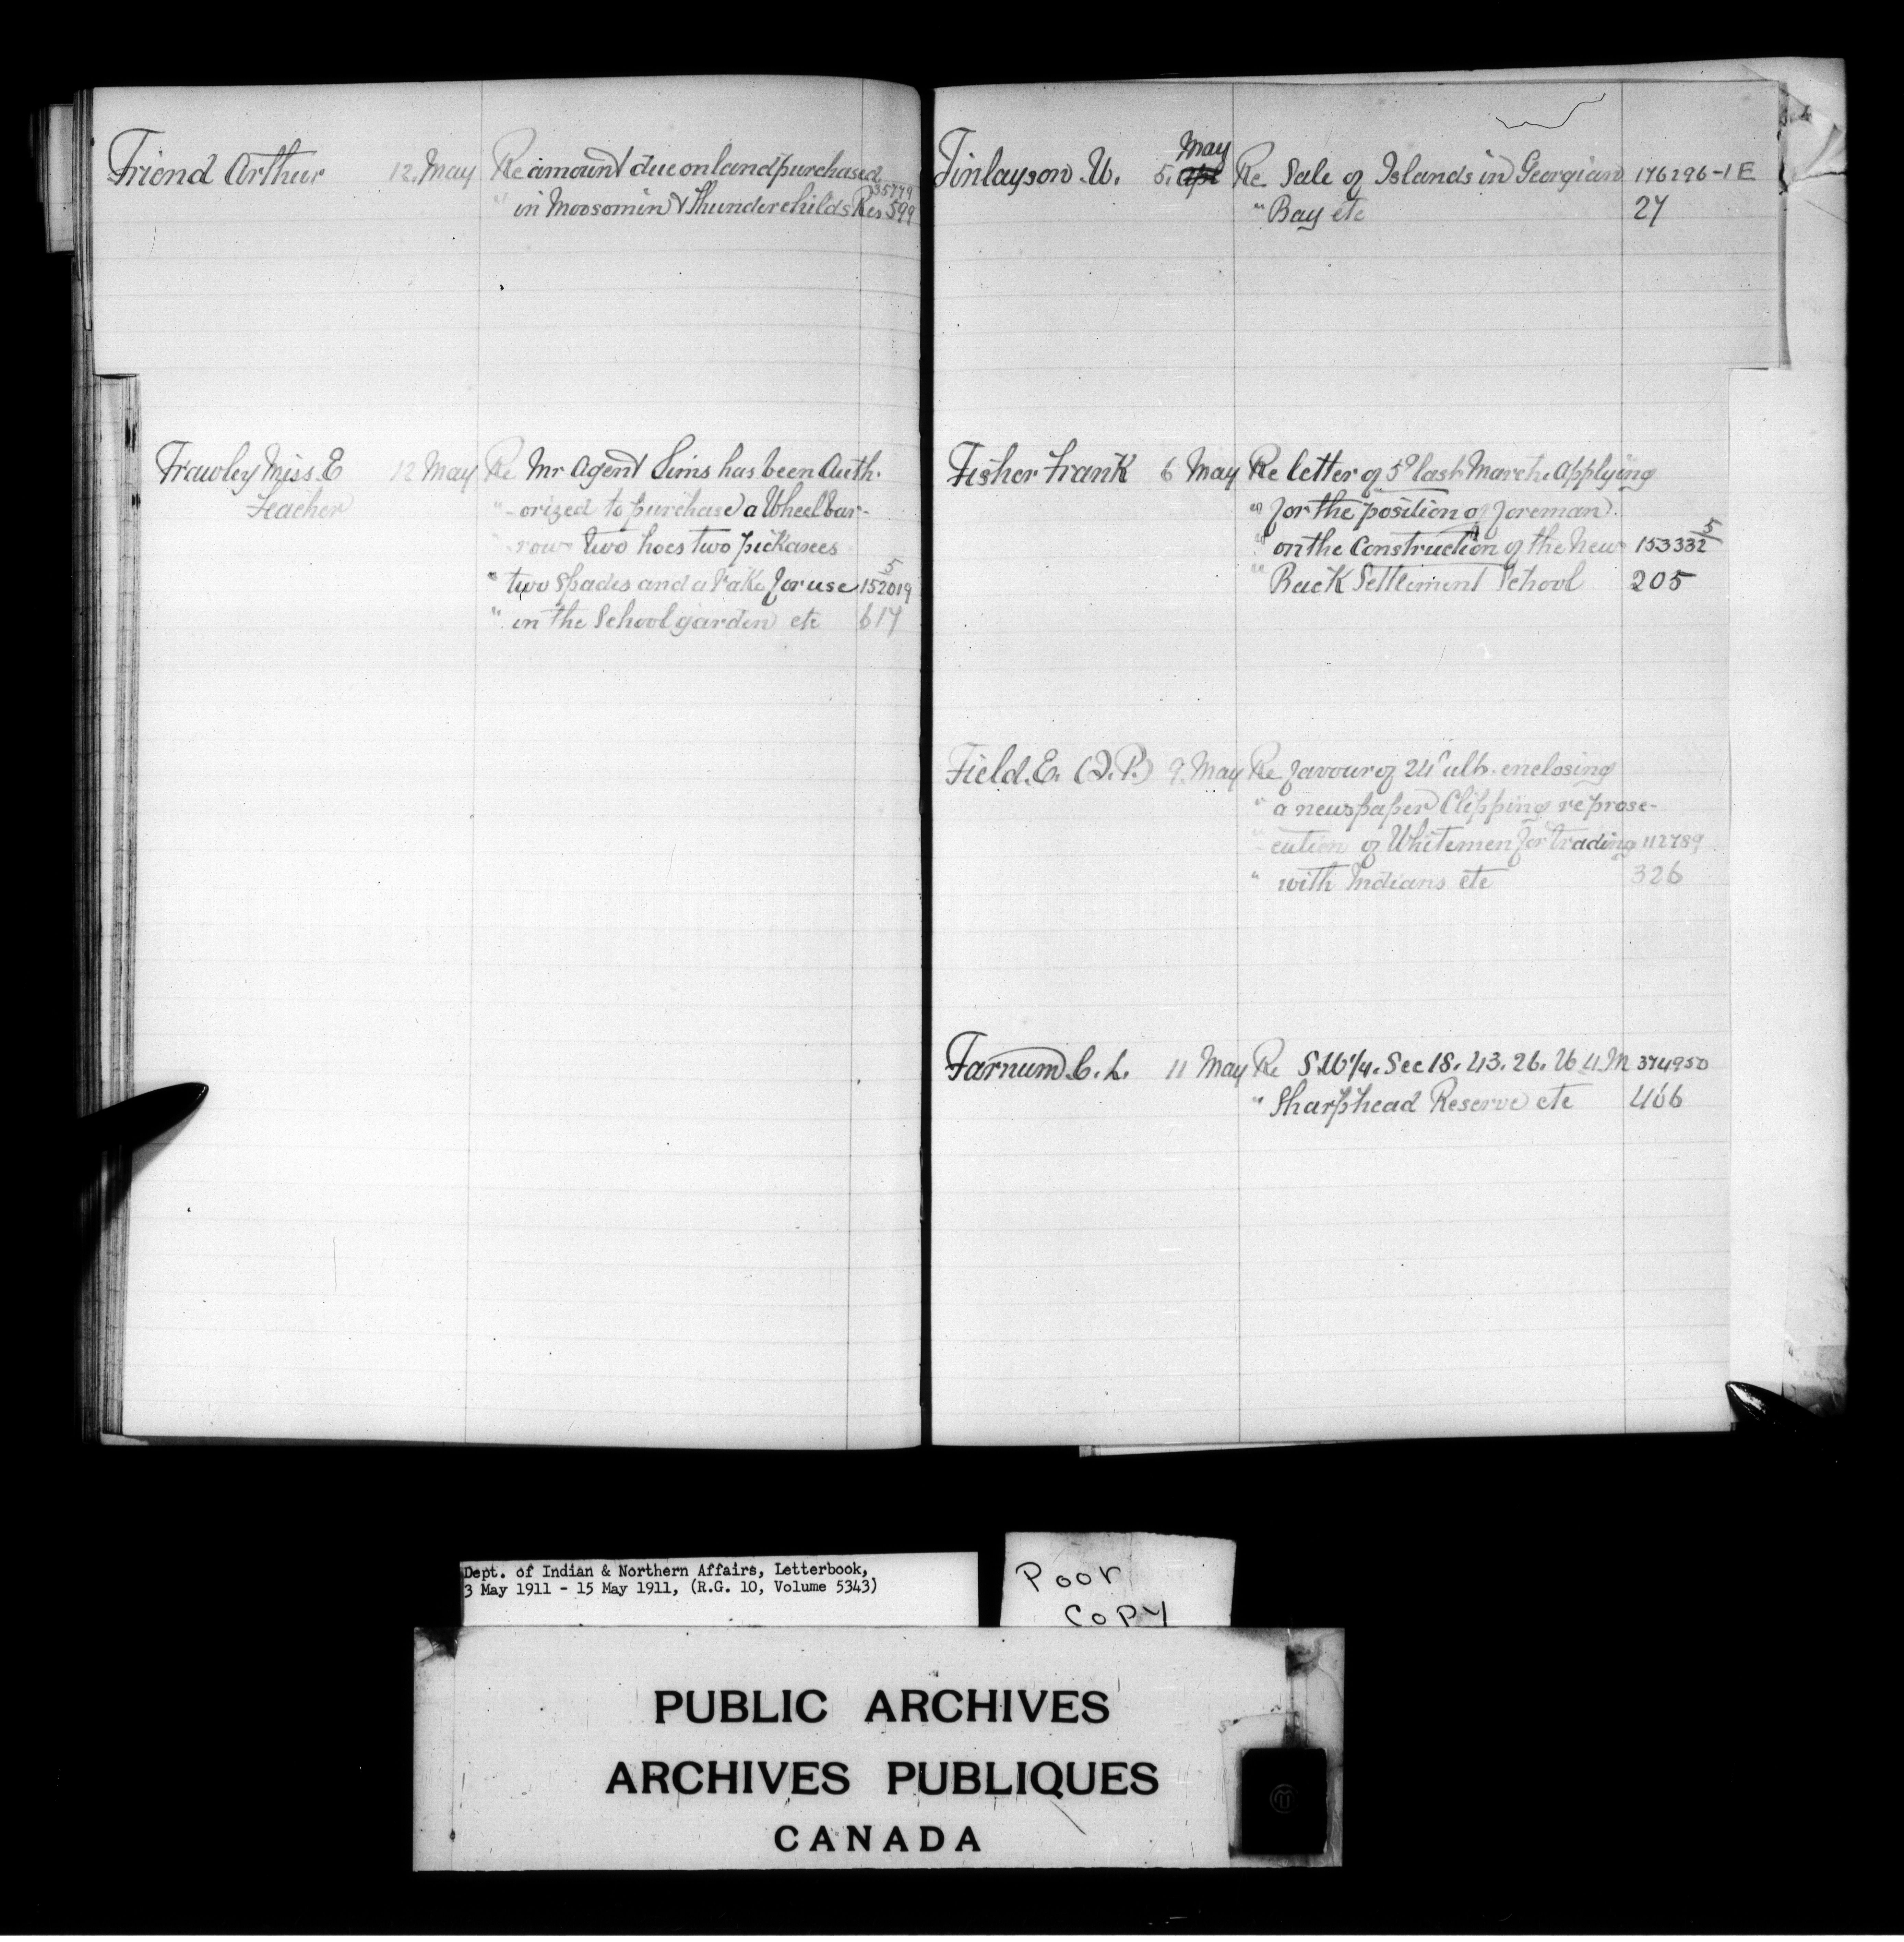 Friend Arthur 12. May Re amount due on land purchased 35779
" in Moosomin & Thunderchilds Res 599
Frawley Miss. E 12 May Re Mr Agent Sims has been Auth-
Teacher " -orized to purchase a Wheelbar-
" -row two hoes two pickaxes
" two Spades and a rake for use 152019/5
" in the School garden etc 617
Finlayson. W. 5. Apl May Re Sale of Islands in Georgian 176296-1E
" Bay etc 27
Fisher Frank 6 May Re letter of 5º last March. Applying
" for the position of foreman
" on the Construction of the New 153332/5
" Back Settlement School 205
Field. E. (J.P.) 9. May Re favour of 24" ulto. enclosing
" a newspaper Clipping re prose-
" -cution of Whitemen for trading 112789
" with Indians etc 326
Farnum. C. L. 11 May Re S.W 1/4. Sec 18. 43. 26. W 4. M 374950
" Sharphead Reserve etc 466
Dept. of Indian & Northern Affairs, Letterbook,
3 May 1911 - 15 May 1911, (R.G. 10, Volume 5343)
Poor
Copy
PUBLIC ARCHIVES
ARCHIVES PUBLIQUES
CANADA